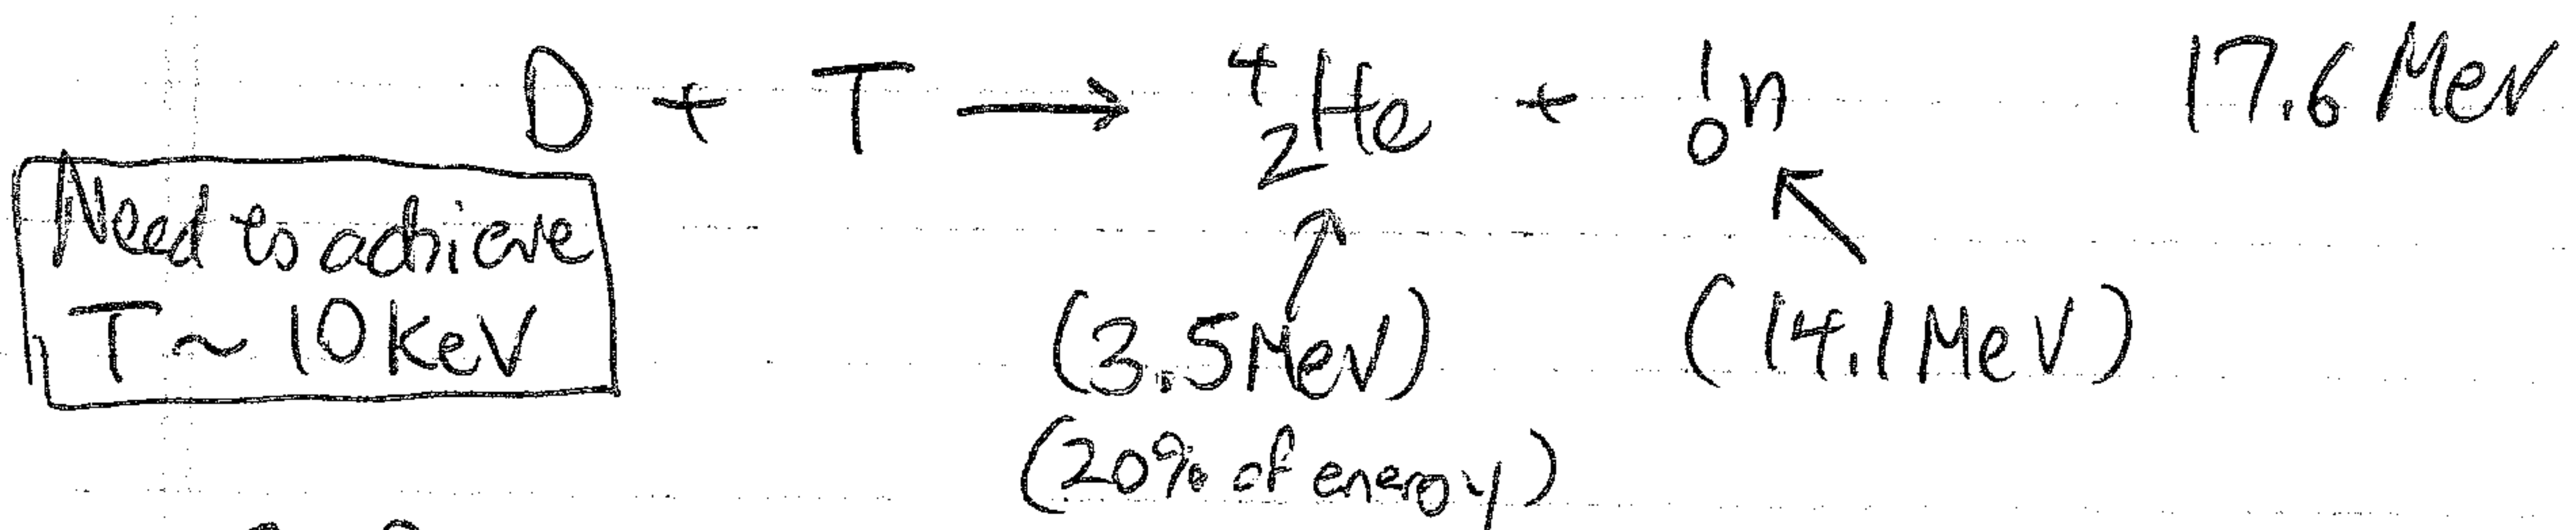 D + T → ⁴₂He + ¹₀n 17.6 MeV
Need to achieve
T ~ 10 keV
(3.5 MeV) (14.1 MeV)
(20% of energy)